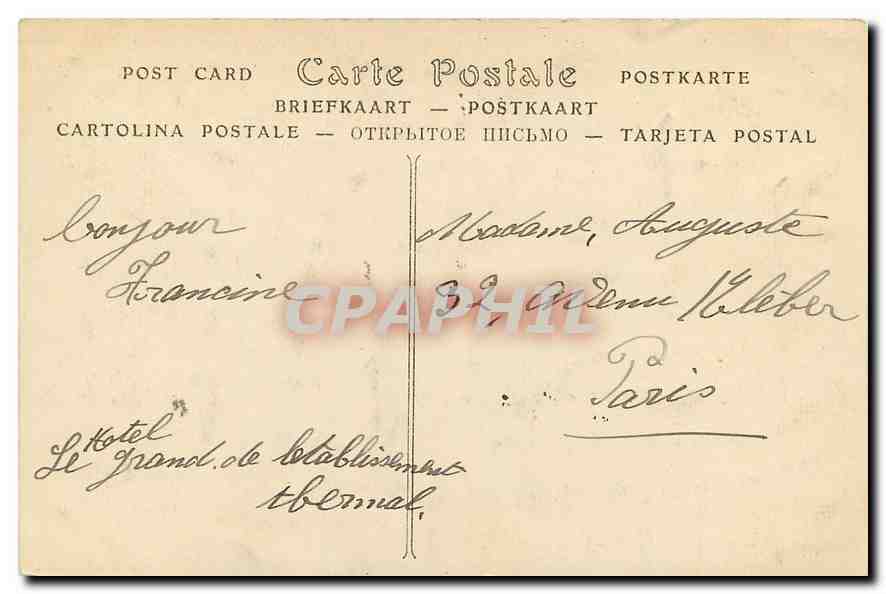 POST CARD Carte Postale POSTKARTE
BRIEFKAART — POSTKAART
CARTOLINA POSTALE — ОТКРЫТОЕ ПИСЬМО — TARJETA POSTAL
bonjour
Francine
Hotel
Le grand de letablissement
thermal,
Madame, Auguste
32, Avenu Kléber
a
Paris
CPAPHIL